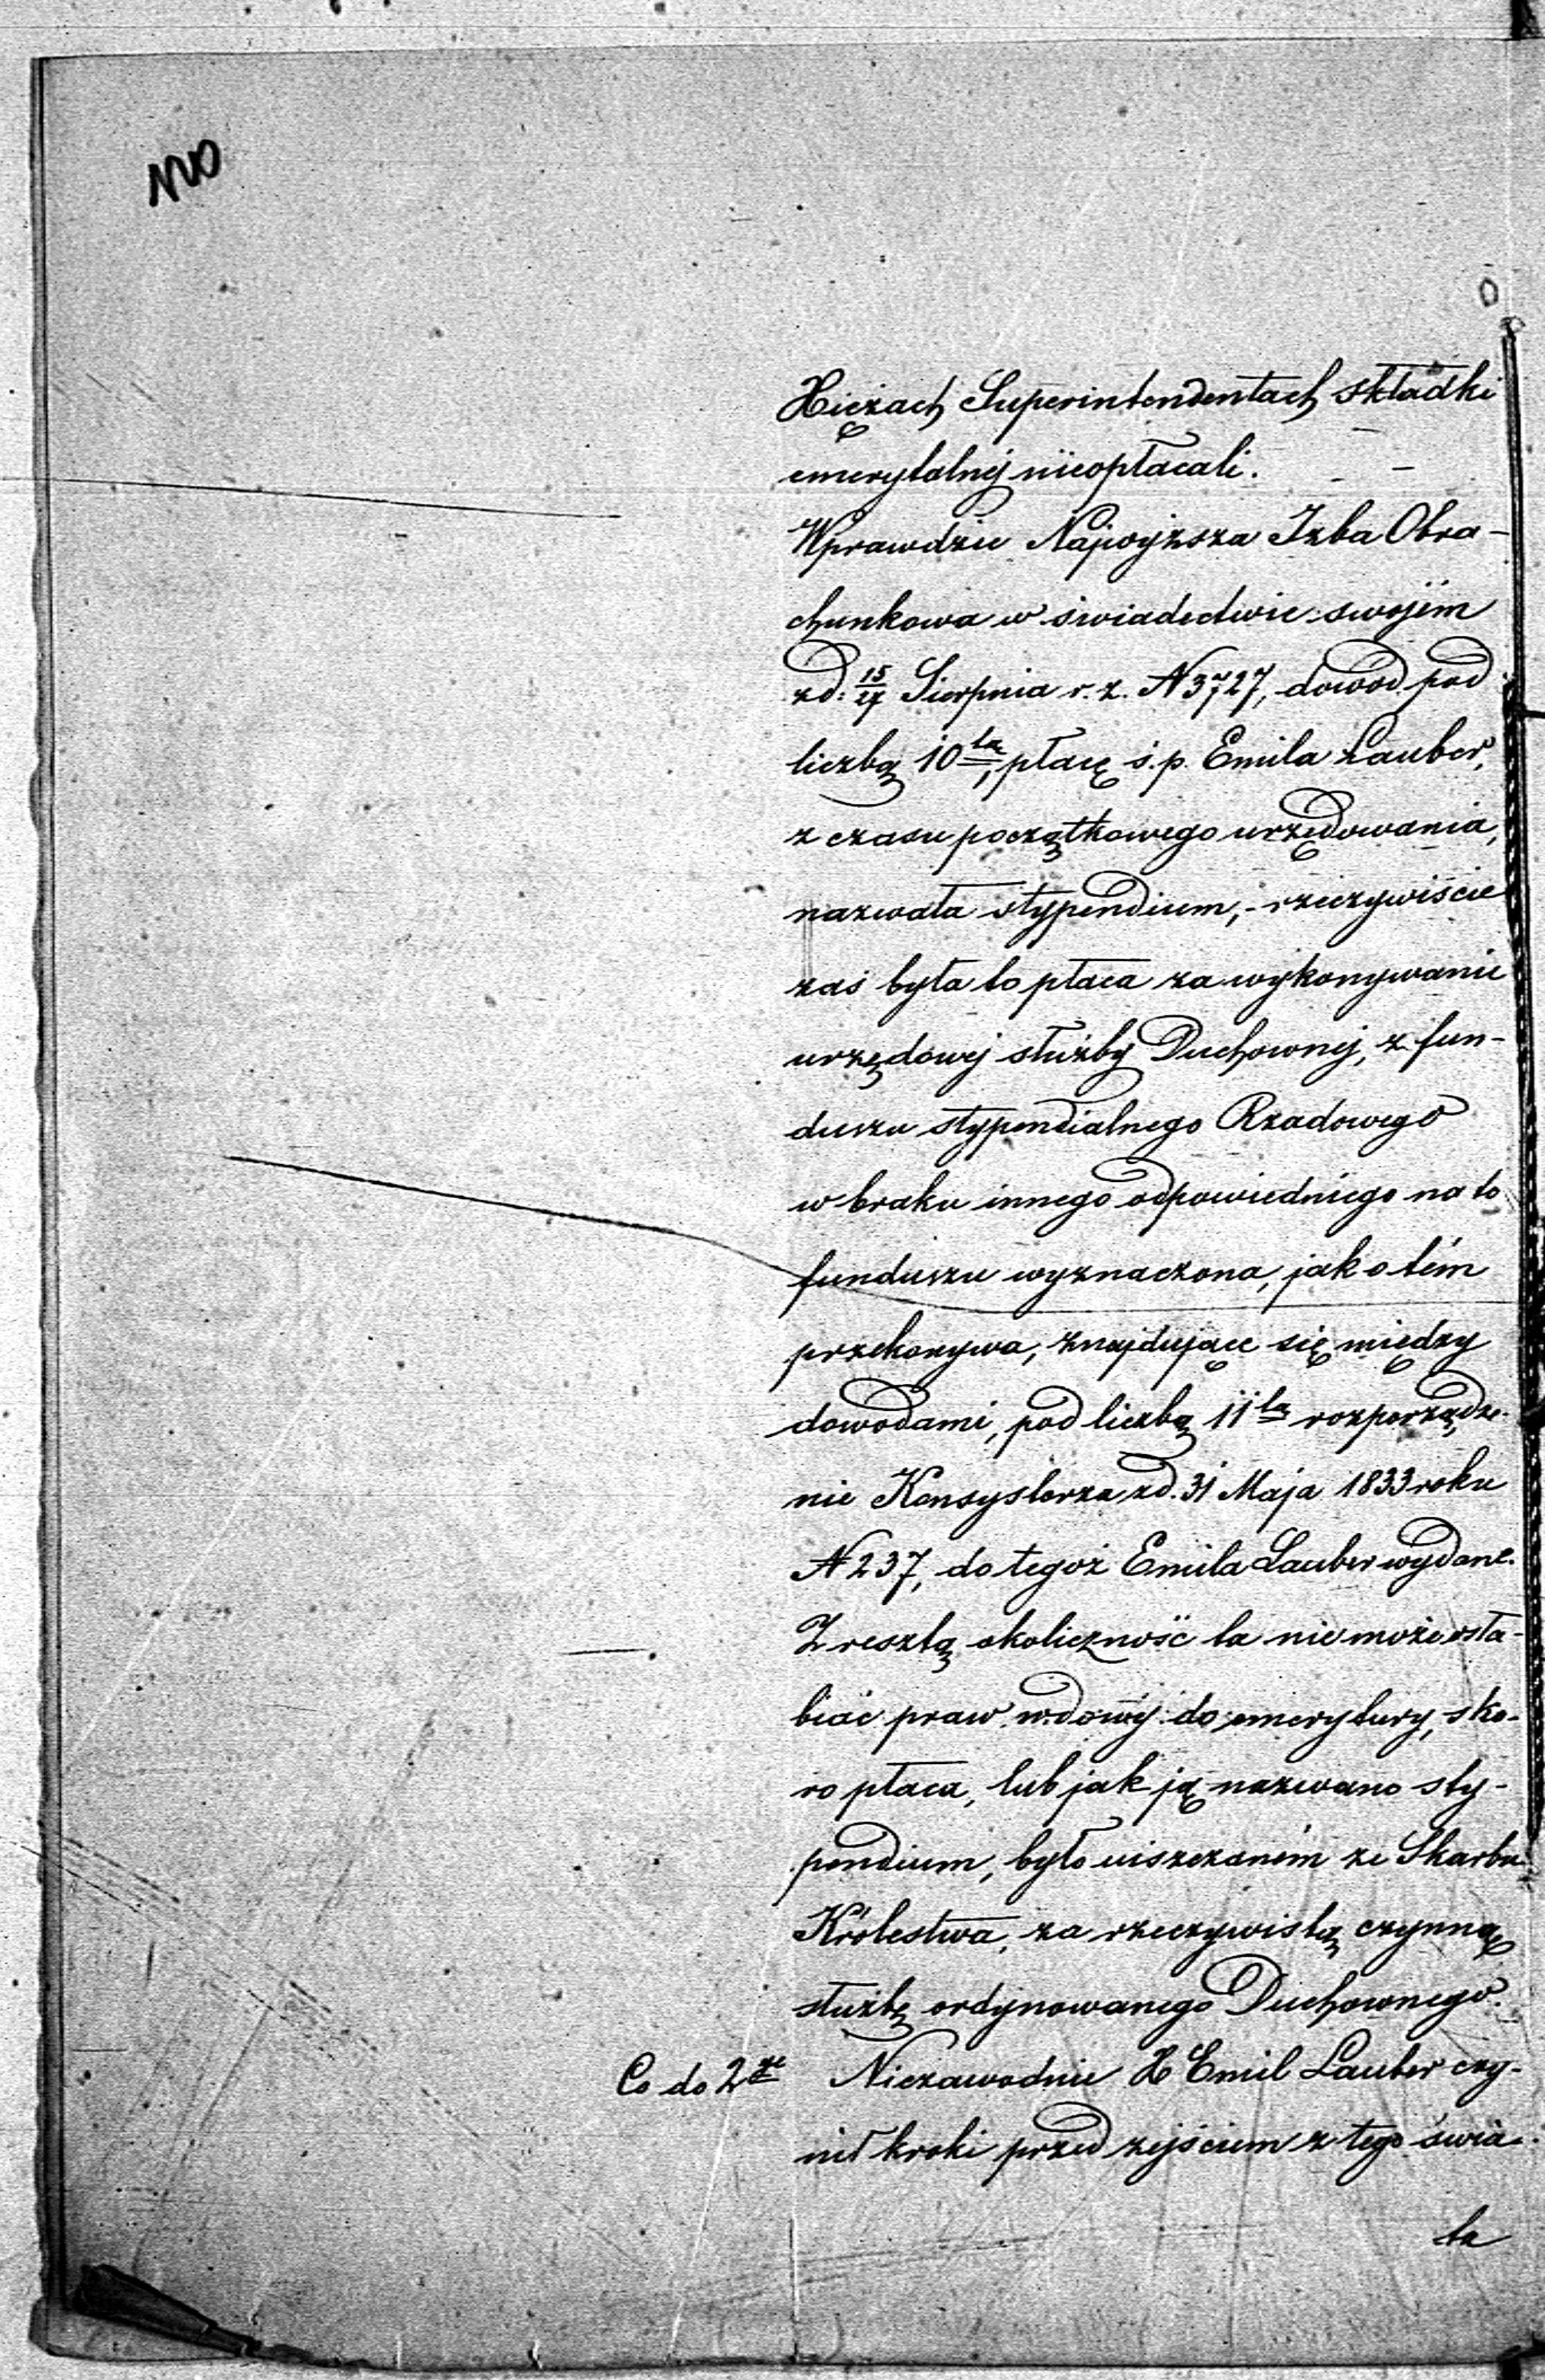 Xiężach Superintendentach składki
emerytalnéj nieopłacali.
Wprawdzie Najwyższa Izba Obra-
chunkowa w świadectwie swojém
zd: 15/27 Sierpnia r. z. N 3727, dowod pod
liczbą 10tą, płacę ś. p. Emila Lauber,
z czasu początkowego urzędowania,
nazwała stypendium, - rzeczywiście
zaś była to płaca za wykonywanie
urzędowej służby Duchownej, z fun-
duszu stypendialnego Rządowego
w braku innego odpowiedniego na to
funduszu wyznaczona, jak o tém
przekonywa, znajdujące się między
dowodami, pod liczbą 11tą rozporządze-
nie Konsystorza zd. 31 Maja 1833 roku
N 237, do tegoż Emila Lauber wydane.
Zresztą okoliczność ta nie może osła-
biać praw wdowy do emerytury, sko-
ro płaca, lub jak ją nazwano sty-
pendium, było uiszczaném ze Skarbu
Królestwa, za rzeczywistą czynną
służbę ordynowanego Duchownego.
Co do 2go Niezawodnie X Emil Lauber czy-
nił kroki przed zejściem z tego świa-
ta